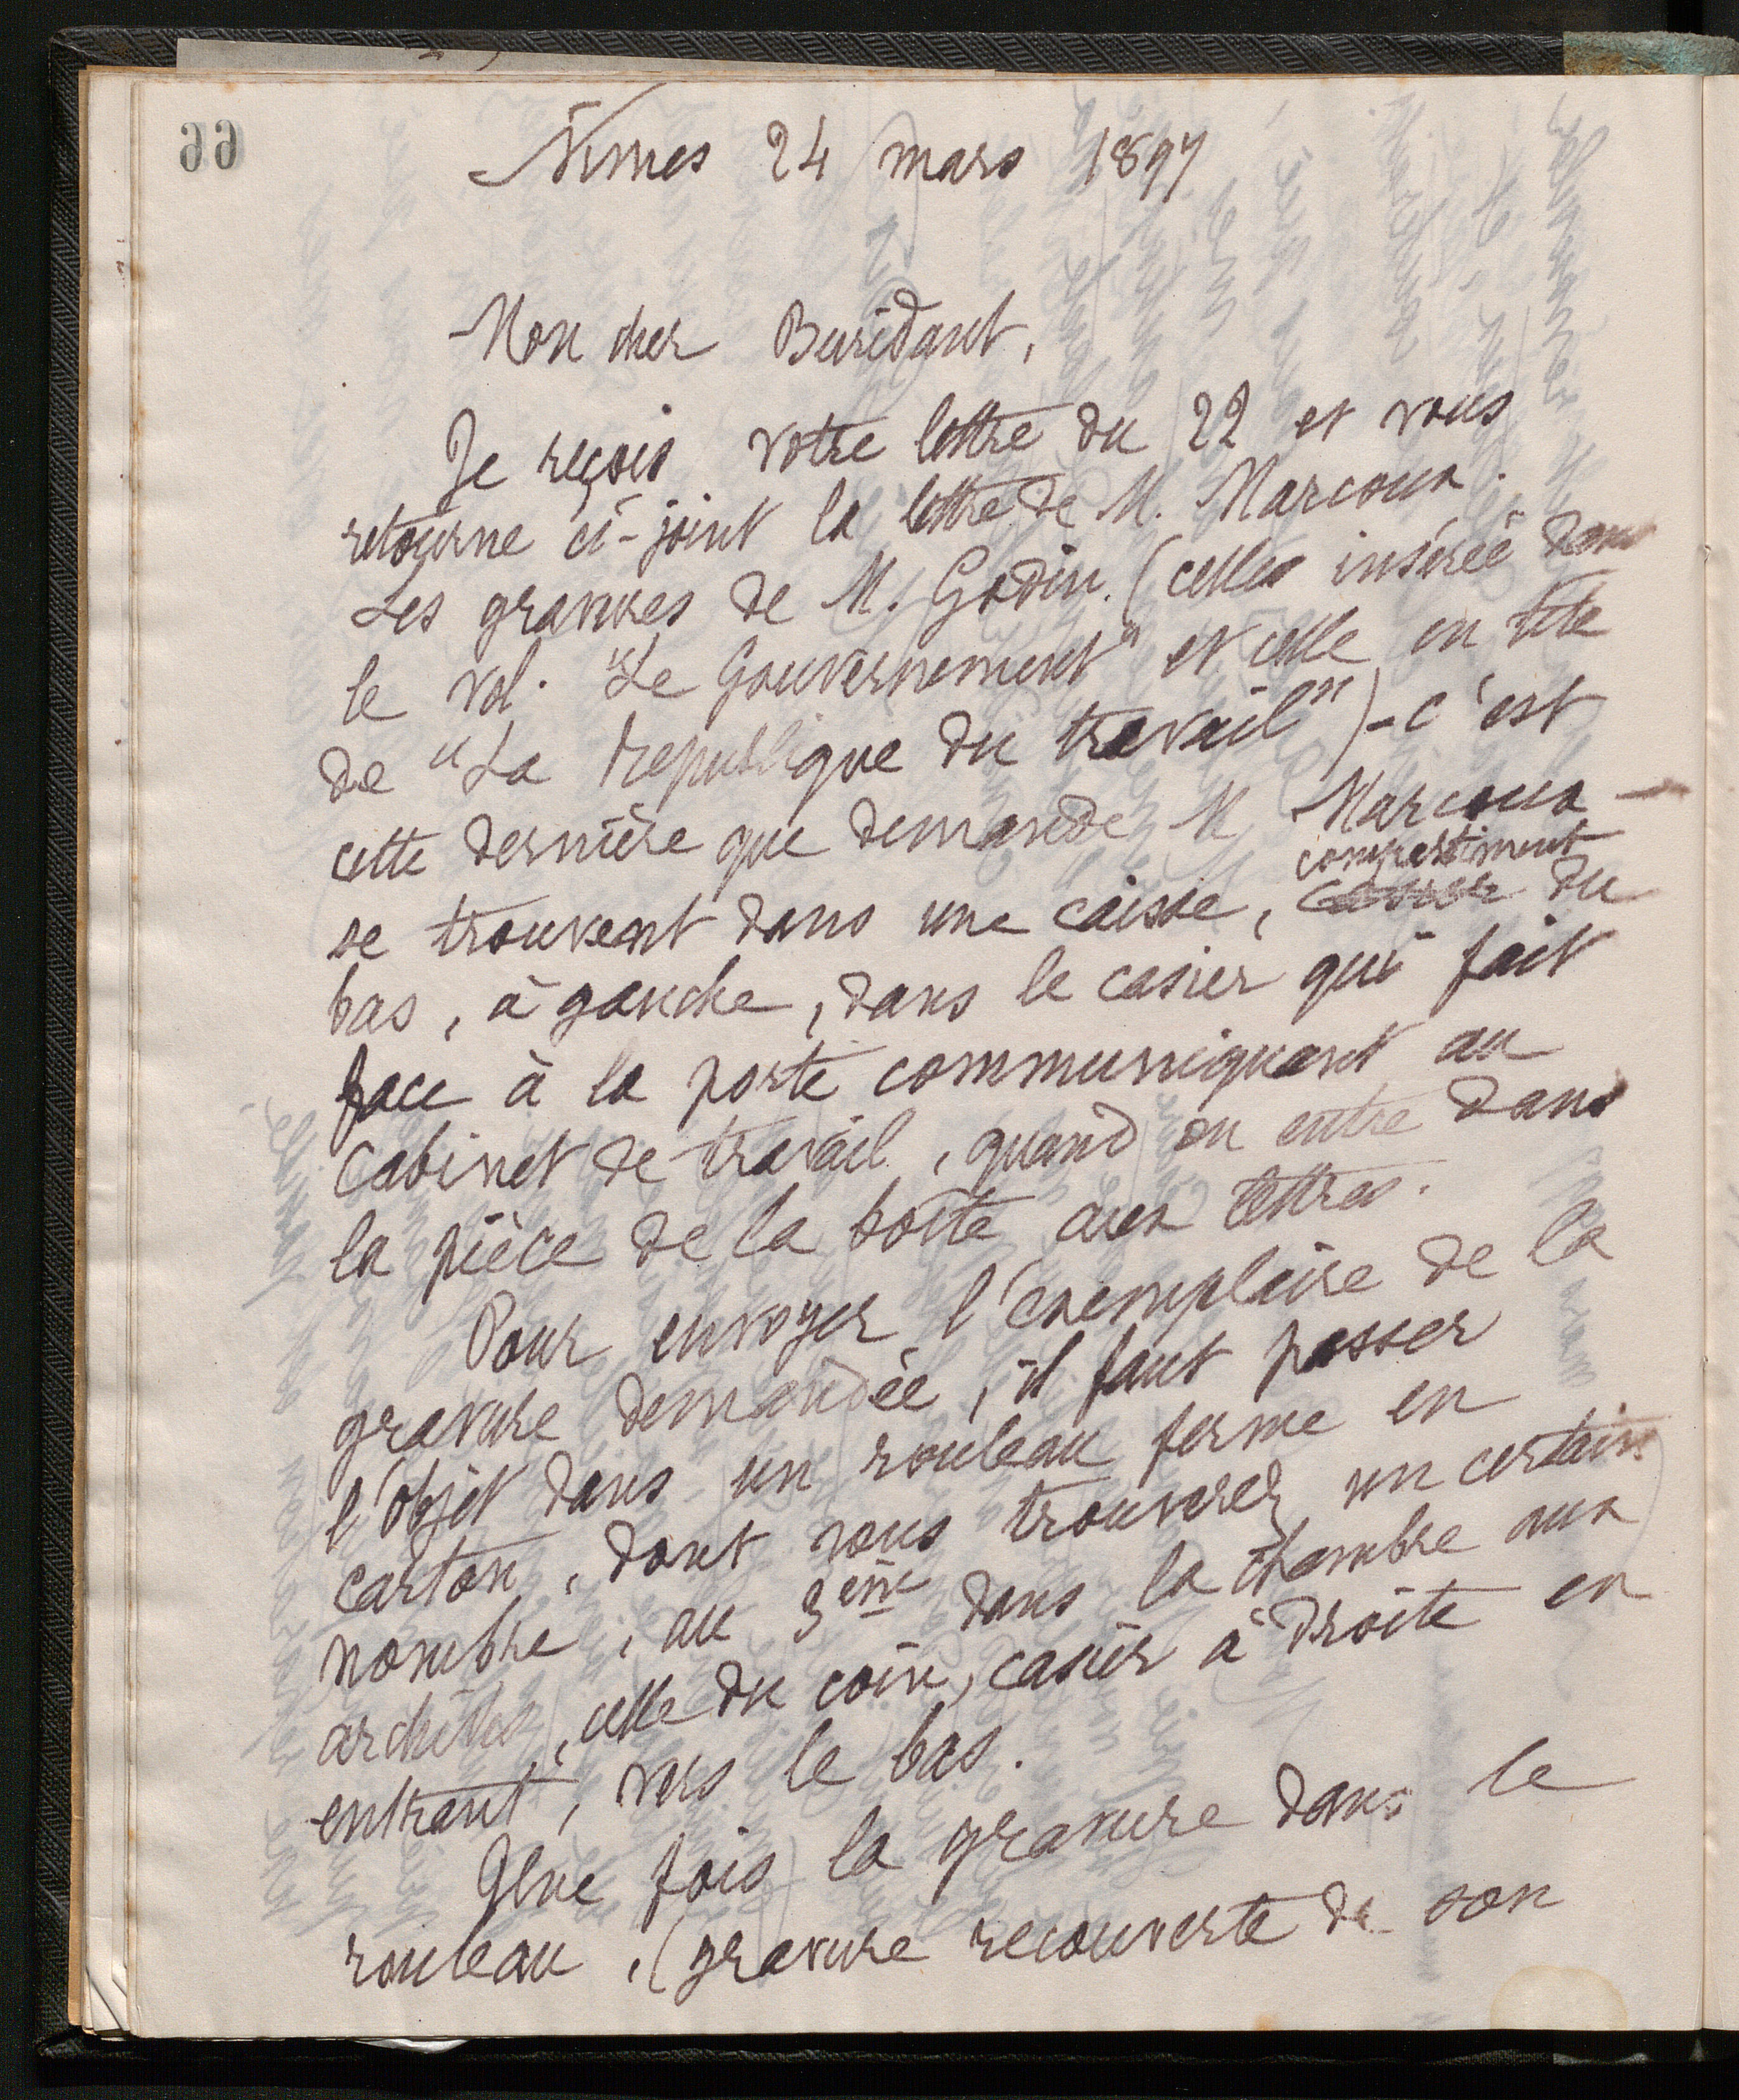 99
Nîmes 24 mars 1897
Mon cher Buridant,
Je reçois votre lettre du 22 et vous
retourne ci-joint la lettre de M. Marcoux.
Les gravures de M. Godin. (celles insérée dans
le vol. "Le Gouvernement" et celle en tête
de "La République du travail") - c'est
cette dernière que demande M Marcoux -
compartiment
se trouvent dans une caisse, casier du
bas, à gauche, dans le casier qui fait
face à la porte communiquant au
cabinet de travail, quand on entre dans
la pièce de la boîte aux lettres.
Pour envoyer l'exemplaire de la
gravure demandée, il faut passer
l'objet dans un rouleau ferme en
carton, dont vous trouverez un certain
nombre, au 3ème dans la chambre aux
archives, celle du coin, casier à droite en
entrant, vers le bas.
Une fois la gravure dans le
rouleau, (gravure recouverte de son